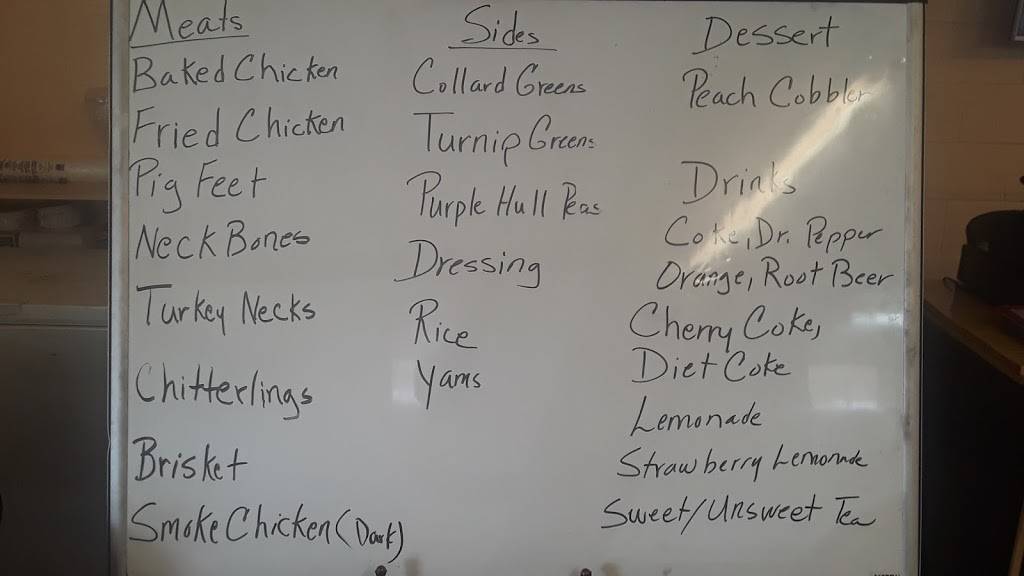 Meats
Baked Chicken
Fried Chicken
Pig Feet
Neck Bones
Turkey Necks
Chitterlings
Brisket
Smoke Chicken (Dark)
Sides
Collard Greens
Turnip Greens
Purple Hull Peas
Dressing
Rice
Yams
Dessert
Peach Cobbler
Drinks
Coke, Dr. Pepper
Orange, Root Beer
Cherry Coke,
Diet Coke
Lemonade
Strawberry Lemonade
Sweet/Unsweet Tea